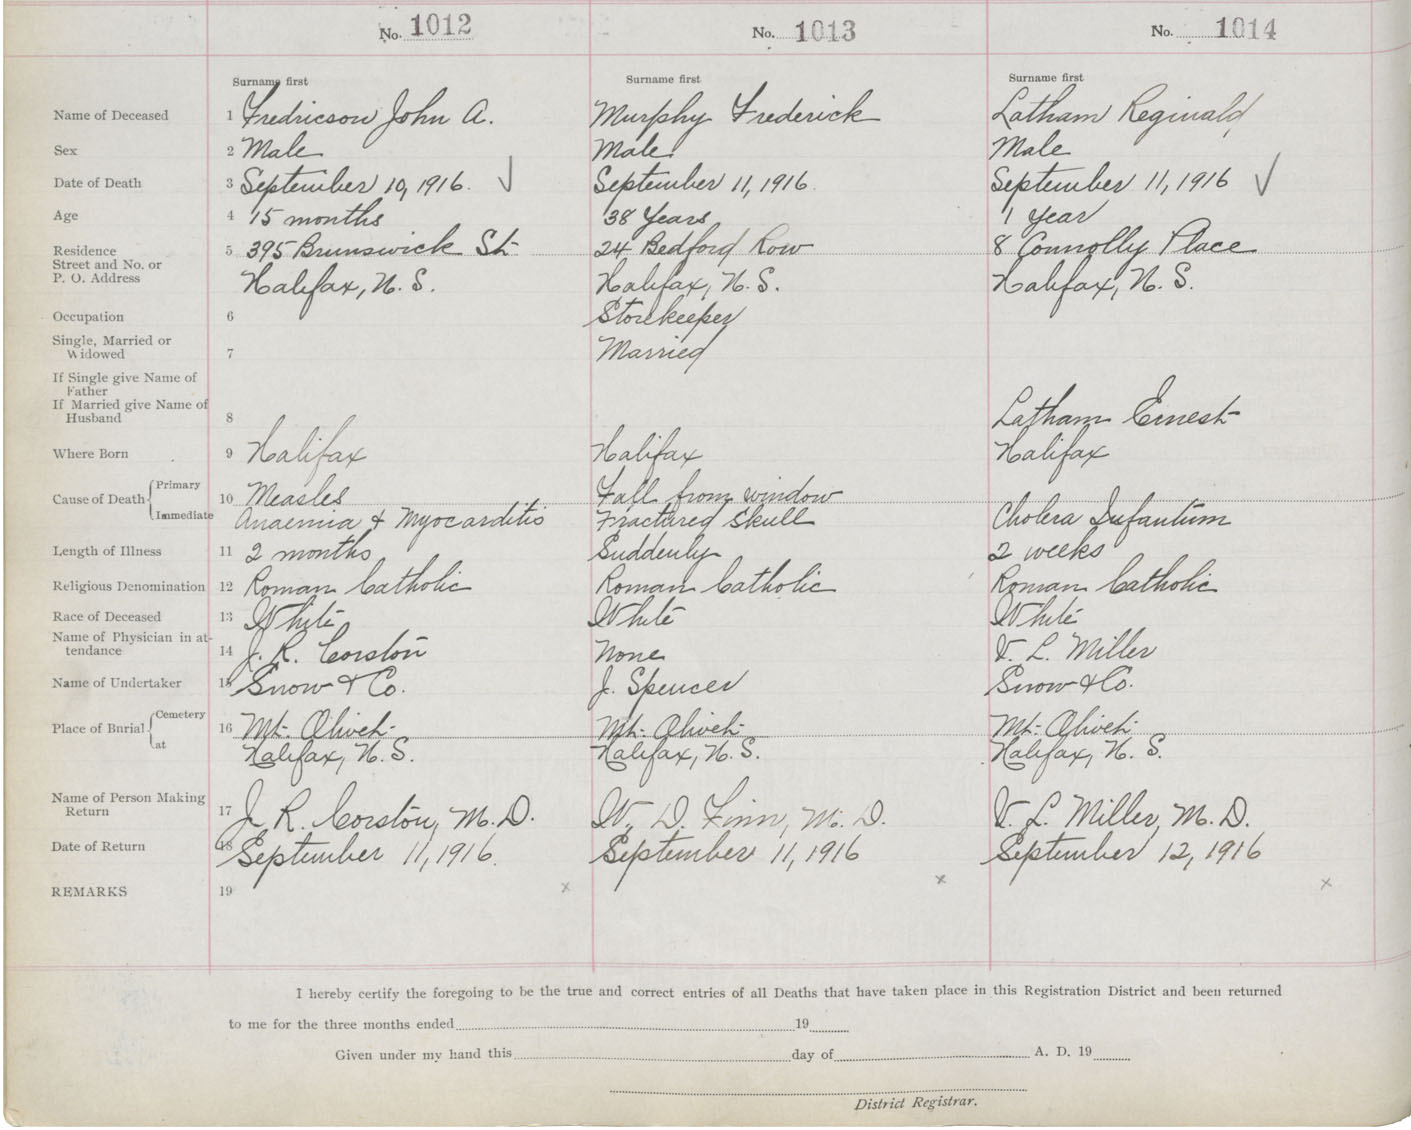 No. 1012 No. 1013 No. 1014
Surname first Surname first Surname first
Name of Deceased 1 Fredricson John A. Murphy Frederick Latham Reginald
Sex 2 Male Male Male
Date of Death 3 September 10, 1916. September 11, 1916. September 11, 1916
Age 4 15 months 38 Years 1 Year
Residence 5 395 Brunswick St. 24 Bedford Row 8 Connolly Place
Street and No. or
P. O. Address Halifax, N. S. Halifax, N. S. Halifax, N. S.
Occupation 6 Storekeeper
Single, Married or
Widowed 7 Married
If Single give Name of
Father
If Married give Name of
Husband 8 Latham Ernest
Where Born 9 Halifax Halifax Halifax
Cause of Death Primary 10 Measles Fall from window
Immediate Anaemia & Myocarditis Fractured Skull Cholera Infantum
Length of Illness 11 2 months Suddenly 2 weeks
Religious Denomination 12 Roman Catholic Roman Catholic Roman Catholic
Race of Deceased 13 White White White
Name of Physician in at-
tendance 14 J. R. Corston None V. L. Miller
Name of Undertaker 15 Snow & Co. J. Spencer Snow & Co.
Place of Burial Cemetery 16 Mt. Olivet Mt. Olivet Mt. Olivet
at Halifax, N. S. Halifax, N. S. Halifax, N. S.
Name of Person Making
Return 17 J. R. Corston, M. D. W. D. Finn, M. D. V. L. Miller, M. D.
Date of Return 18 September 11, 1916. September 11, 1916 September 12, 1916
REMARKS 19 x x x
I hereby certify the foregoing to be the true and correct entries of all Deaths that have taken place in this Registration District and been returned
to me for the three months ended 19
Given under my hand this day of A. D. 19
District Registrar.